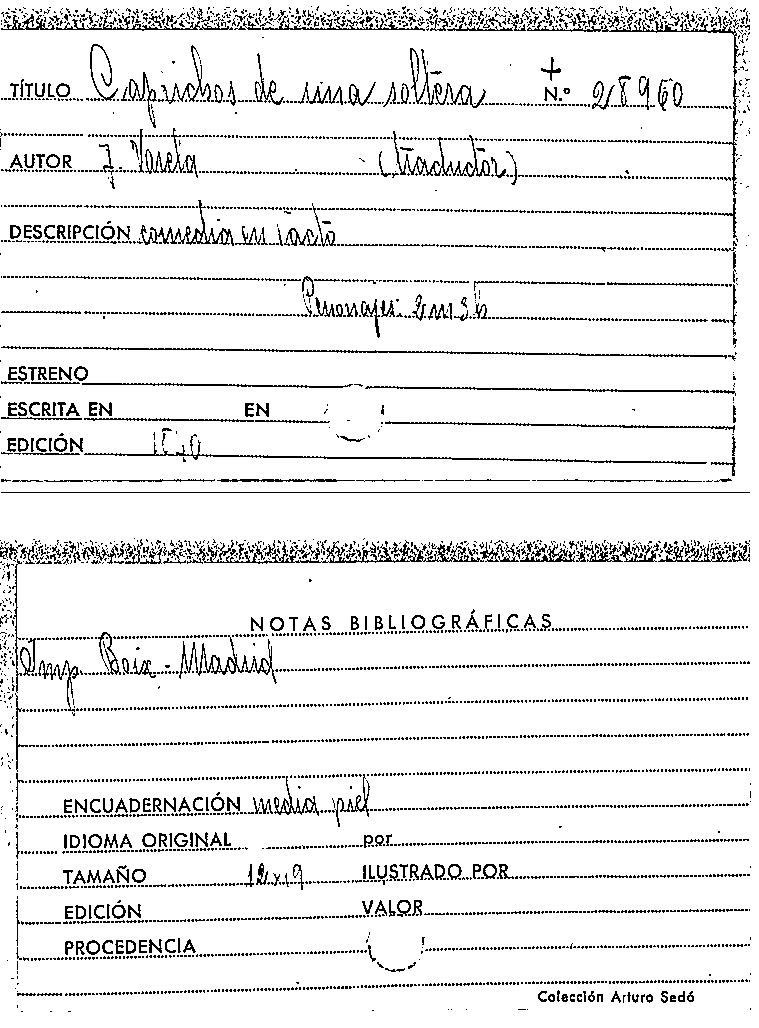 TÍTULO Caprichos de una soltera + N.º 28960
AUTOR J. Varela (traductor)
DESCRIPCIÓN comedia en 1 acto
Personajes: 2 m 3 h
ESTRENO
ESCRITA EN EN
EDICIÓN 1840
NOTAS BIBLIOGRÁFICAS
Imp. Boix - Madrid
ENCUADERNACIÓN media piel
IDIOMA ORIGINAL por
TAMAÑO 12x19 ILUSTRADO POR
EDICIÓN VALOR
PROCEDENCIA
Colección Arturo Sedó